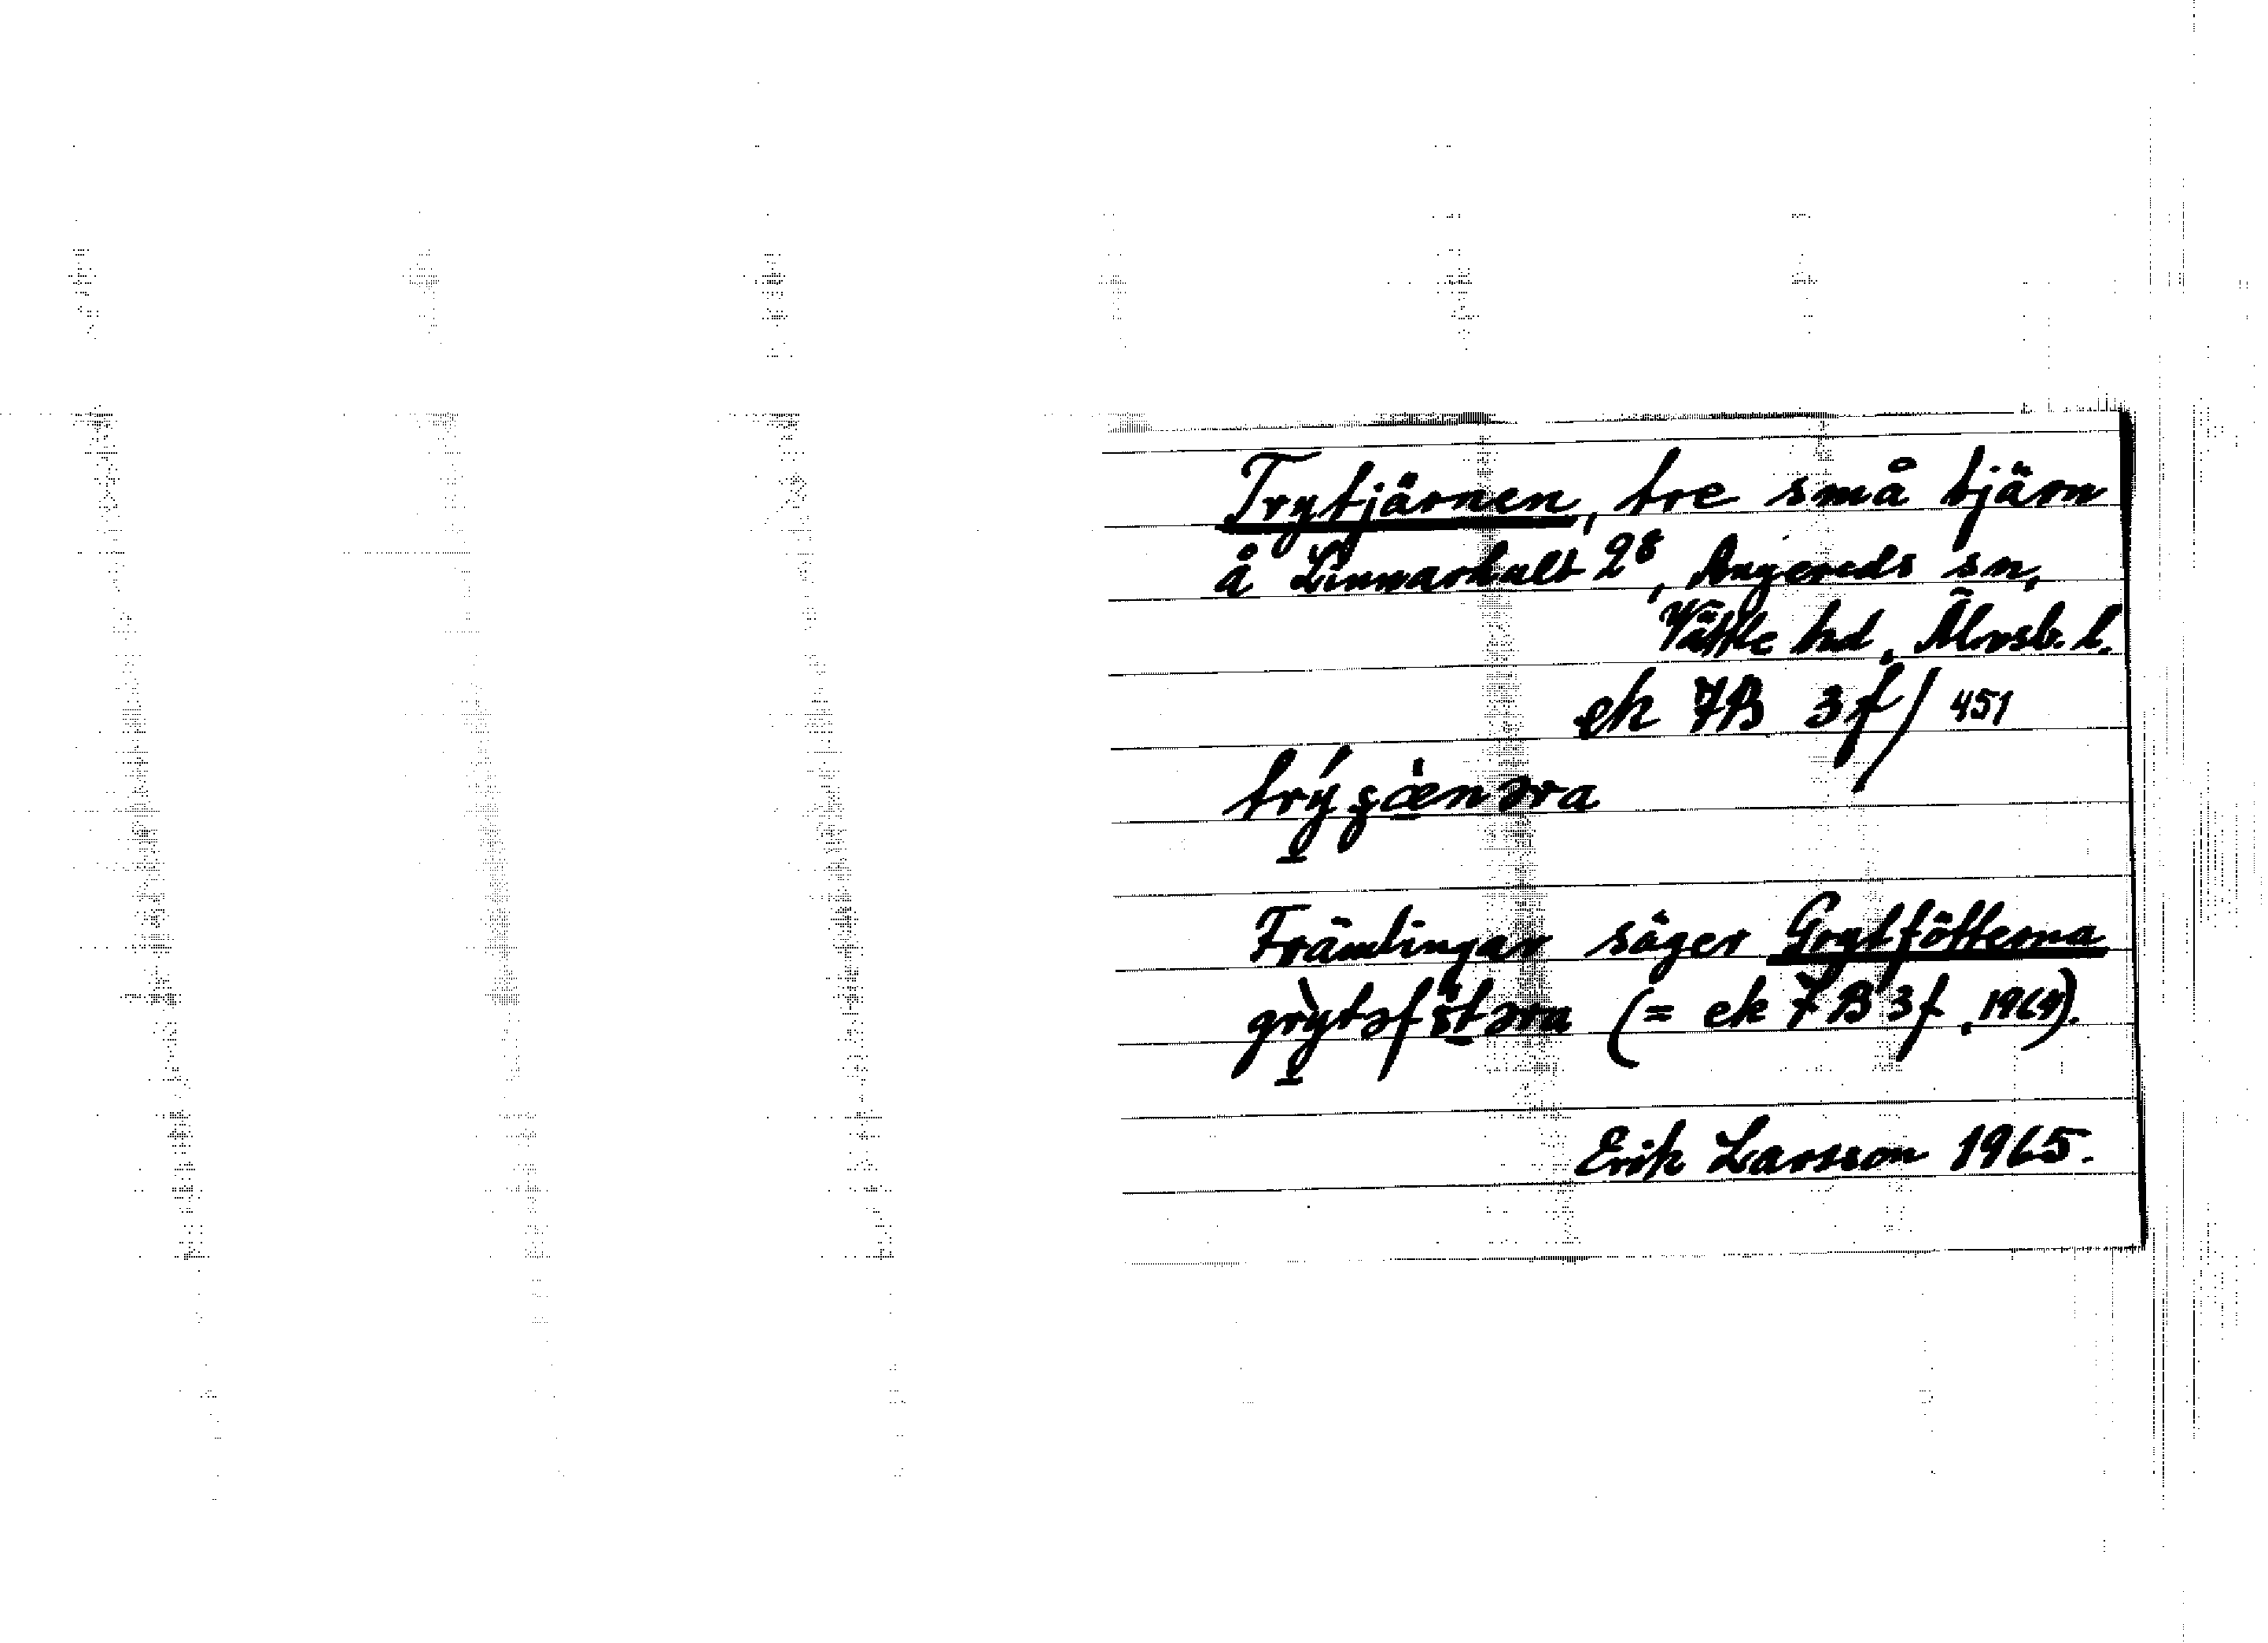 Trytjärnen, tre små tjärn
å Linnarhult 2⁸, Angereds sn,
Vättle hd, Älvsb. l.
ek 7B 3f/451
Främlingar säger Grytfötterna
(= ek 7B 3f, 1964).
Erik Larsson 1965.